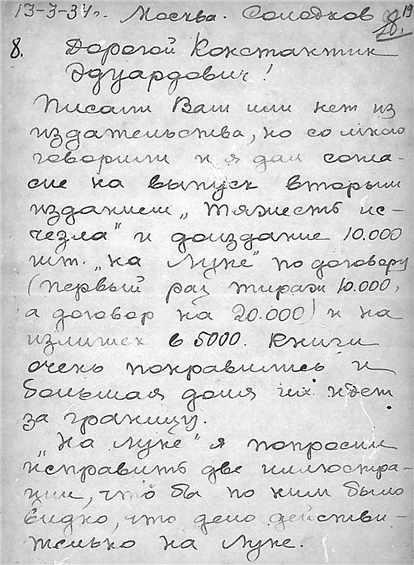 13-3-34г. Москва. Солодков
8. Дорогой Константин
Эдуардович!
Писали Вам или нет из
издательства, но со мною
говорили и я дал согла-
сие на выпуск вторым
изданием „Тяжесть ис-
чезла" и доиздание 10.000
шт. „на Луне" по договору
(первый раз тираж 10.000,
а договор на 20.000) и на
излишек в 5000. Книги
очень понравились и
большая доля их идет
за границу.
„На Луне" я попросил
исправить две иллюстра-
ции, что бы по ним было
видно, что дело действи-
тельно на Луне.